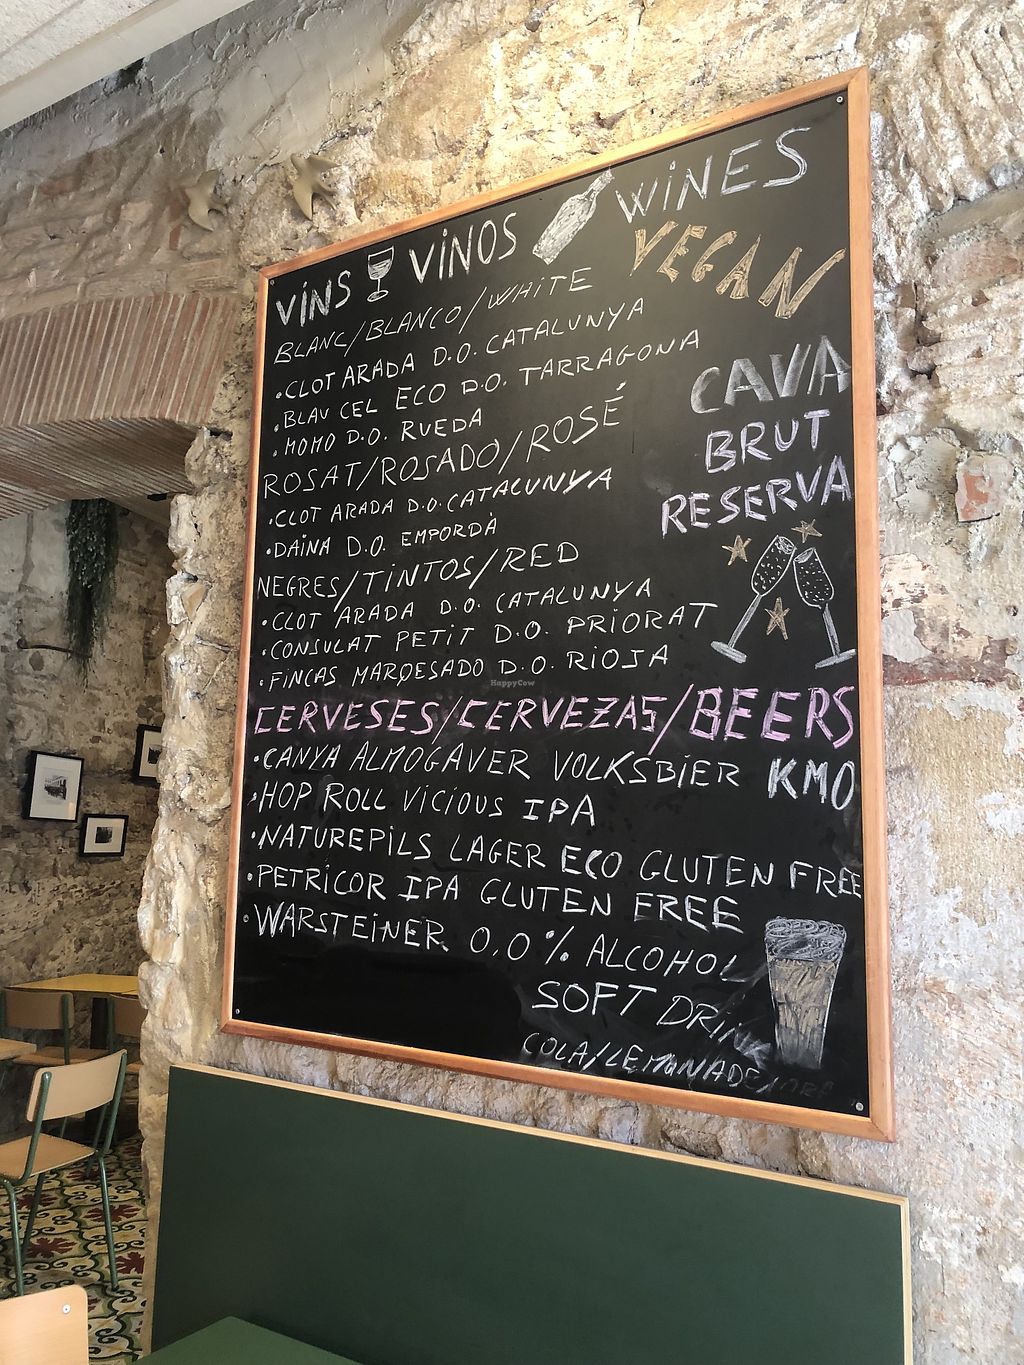 VINS VINOS WINES
VEGAN
BLANC/BLANCO/WHITE
•CLOT ARADA D.O. CATALUNYA
•BLAU CEL ECO D.O. TARRAGONA
•MOMO D.O. RUEDA
ROSAT/ROSADO/ROSÉ
•CLOT ARADA D.O. CATALUNYA
•DAINA D.O. EMPORDÀ
NEGRES/TINTOS/RED
•CLOT ARADA D.O. CATALUNYA
•CONSULAT PETIT D.O. PRIORAT
•FINCAS MARQESADO D.O. RIOJA
CAVA
BRUT
RESERVA
HappyCow
CERVESES/CERVEZAS/BEERS
•CANYA ALMOGAVER VOLKSBIER KMO
•HOP ROLL VICIOUS IPA
•NATUREPILS LAGER ECO GLUTEN FREE
•PETRICOR IPA GLUTEN FREE
•WARSTEINER 0,0% ALCOHOL
SOFT DRINK
COLA/LEMONADE